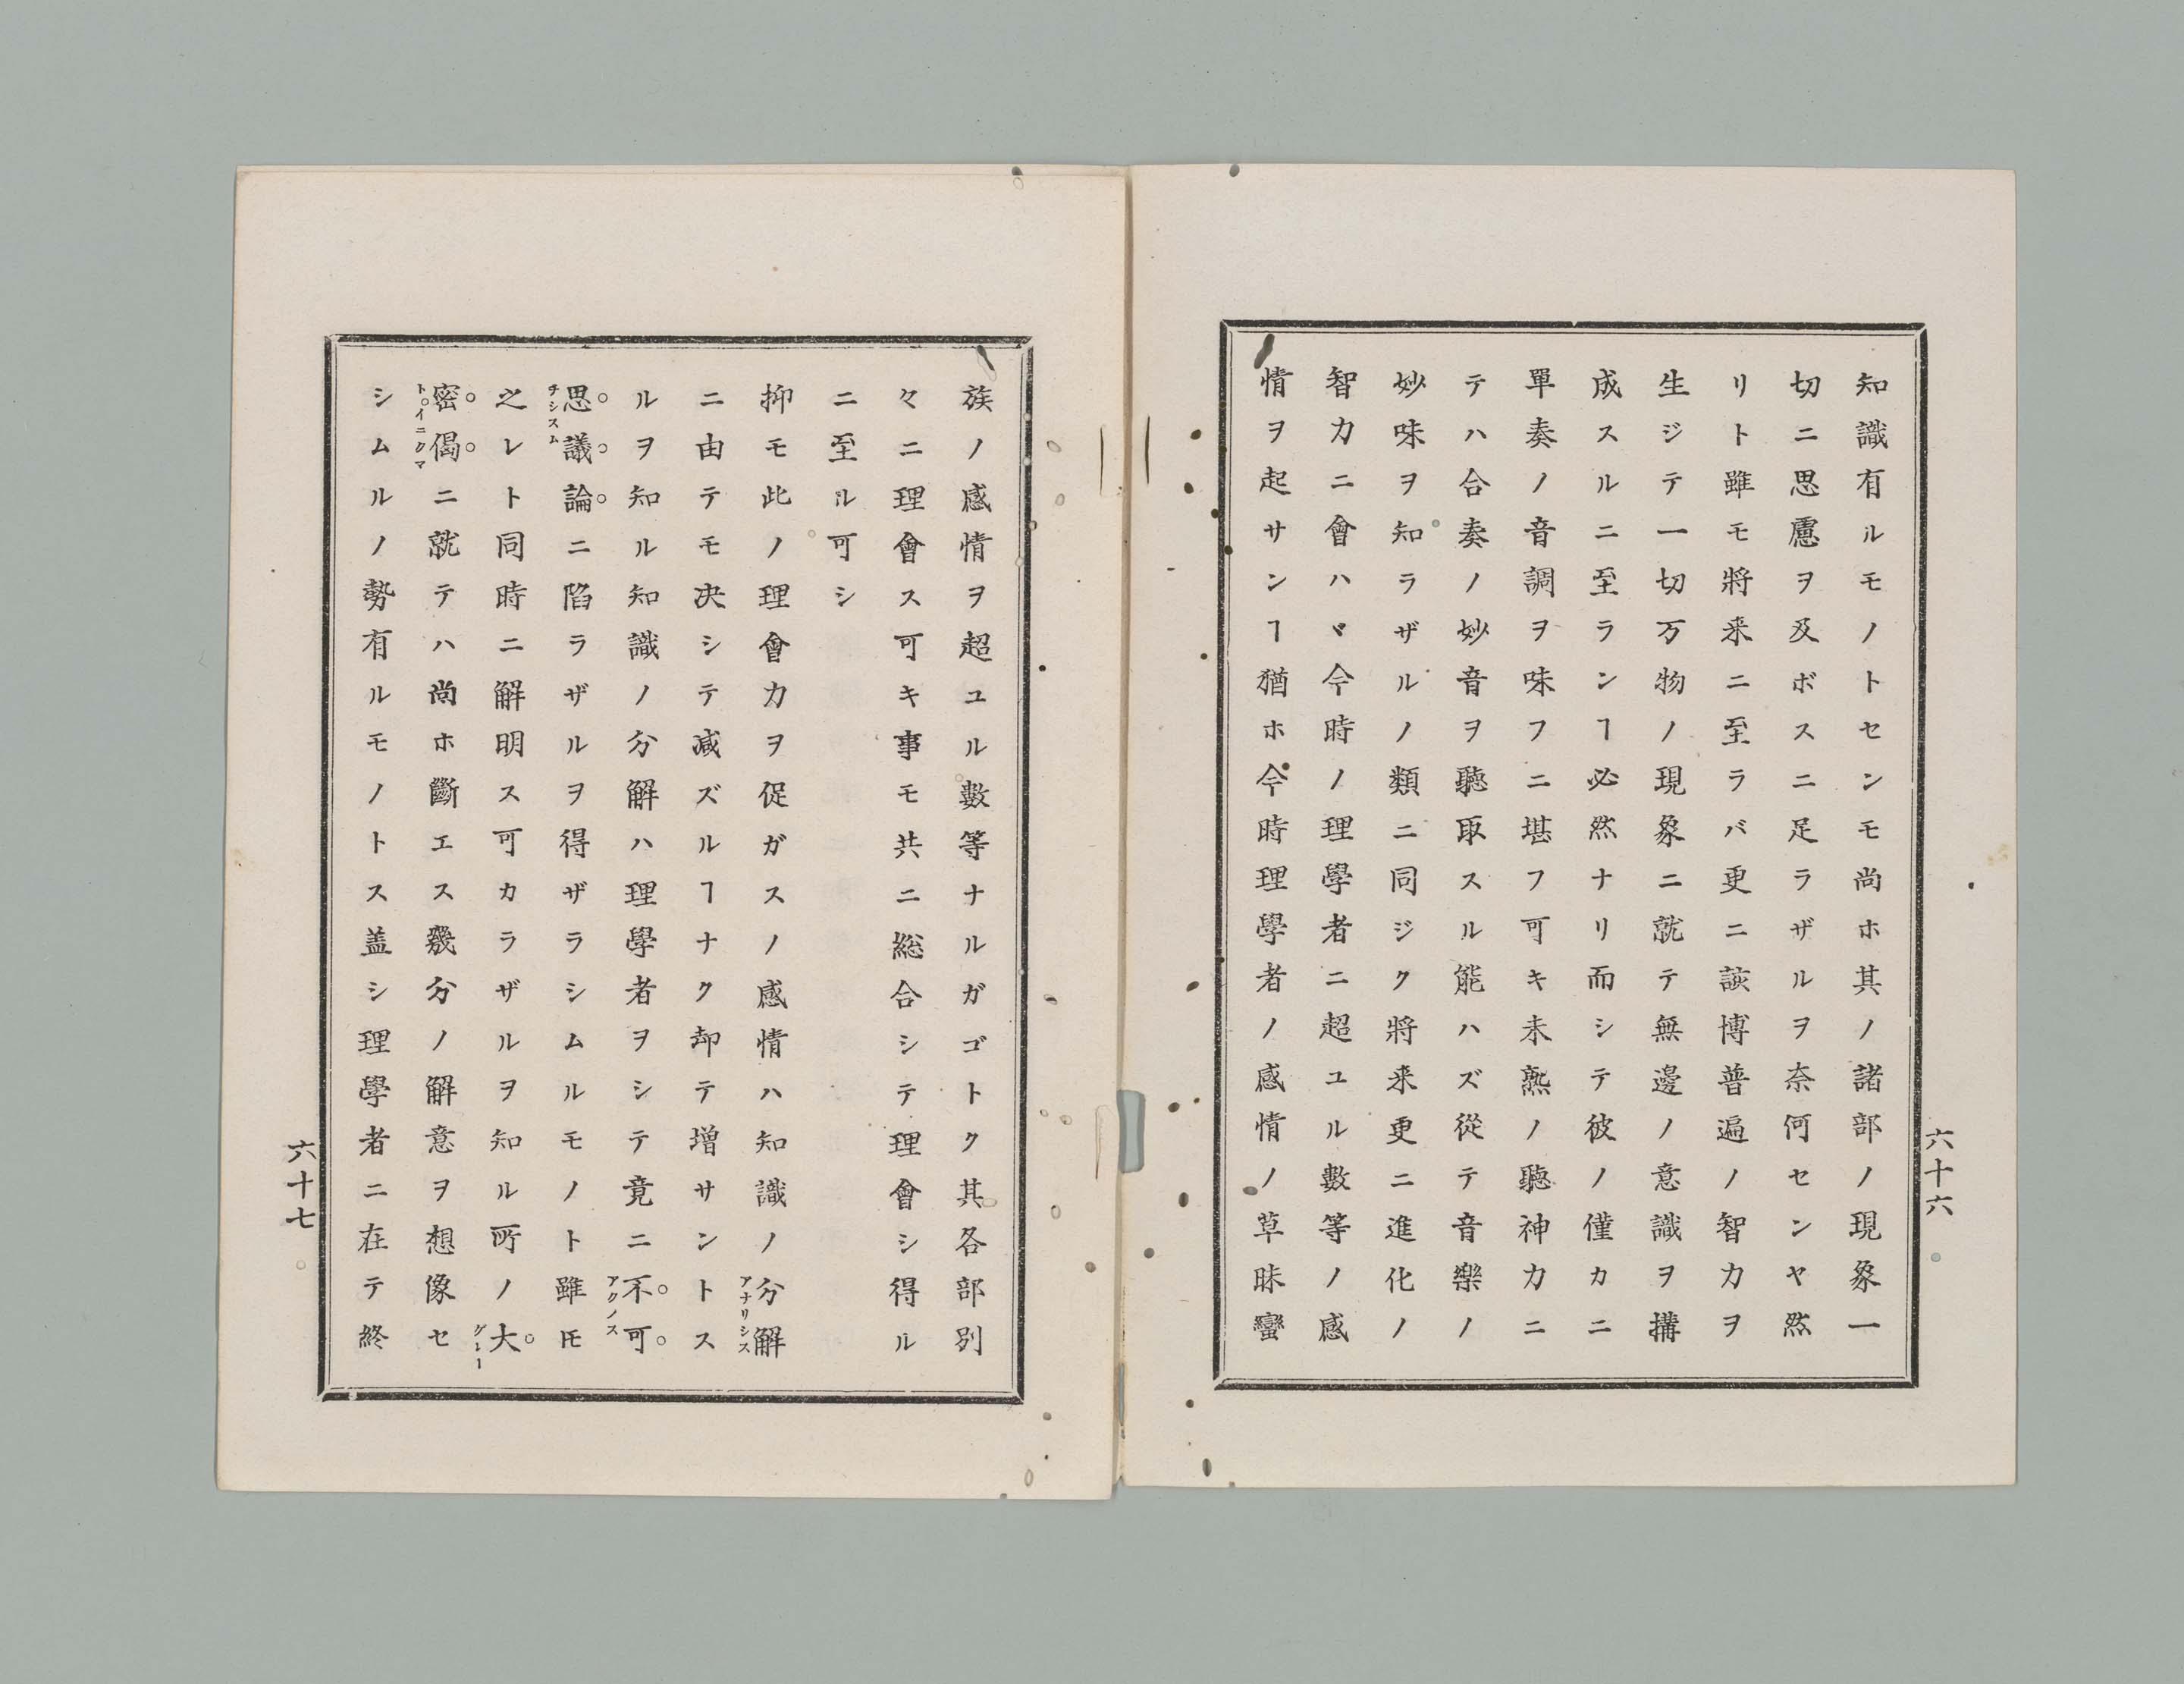 知識有ルモノトセンモ尚ホ其ノ諸部ノ現象一
切ニ思慮ヲ及ボスニ足ラザルヲ奈何センヤ然
リト雖モ將来ニ至ラバ更ニ該博普遍ノ智力ヲ
生ジテ一切万物ノ現象ニ就テ無邊ノ意識ヲ搆
成スルニ至ランヿ必然ナリ而シテ彼ノ僅カニ
單奏ノ音調ヲ味フニ堪フ可キ未熟ノ聽神力ニ
テハ合奏ノ妙音ヲ聽取スル能ハズ從テ音樂ノ
妙味ヲ知ラザルノ類ニ同ジク將来更ニ進化ノ
智力ニ會ハヾ今時ノ理學者ニ超ユル數等ノ感
情ヲ起サンヿ猶ホ今時理學者ノ感情ノ草昧蠻
六十六
族ノ感情ヲ超ユル數等ナルガゴトク其各部別
々ニ理會ス可キ事モ共ニ総合シテ理會シ得ル
ニ至ル可シ
抑モ此ノ理會力ヲ促ガスノ感情ハ知識ノ分解
アナリシス
ニ由テモ决シテ減ズルヿナク却テ増サントス
ルヲ知ル知識ノ分解ハ理學者ヲシテ竟ニ不可
アクノス
思議論ニ陷ラザルヲ得ザラシムルモノト雖𪜈
チシスム
之レト同時ニ解明ス可カラザルヲ知ル所ノ大
グレー
密偈ニ就テハ尚ホ斷エス幾分ノ解意ヲ想像セ
ト。イニクマ
シムルノ勢有ルモノトス盖シ理學者ニ在テ終
六十七